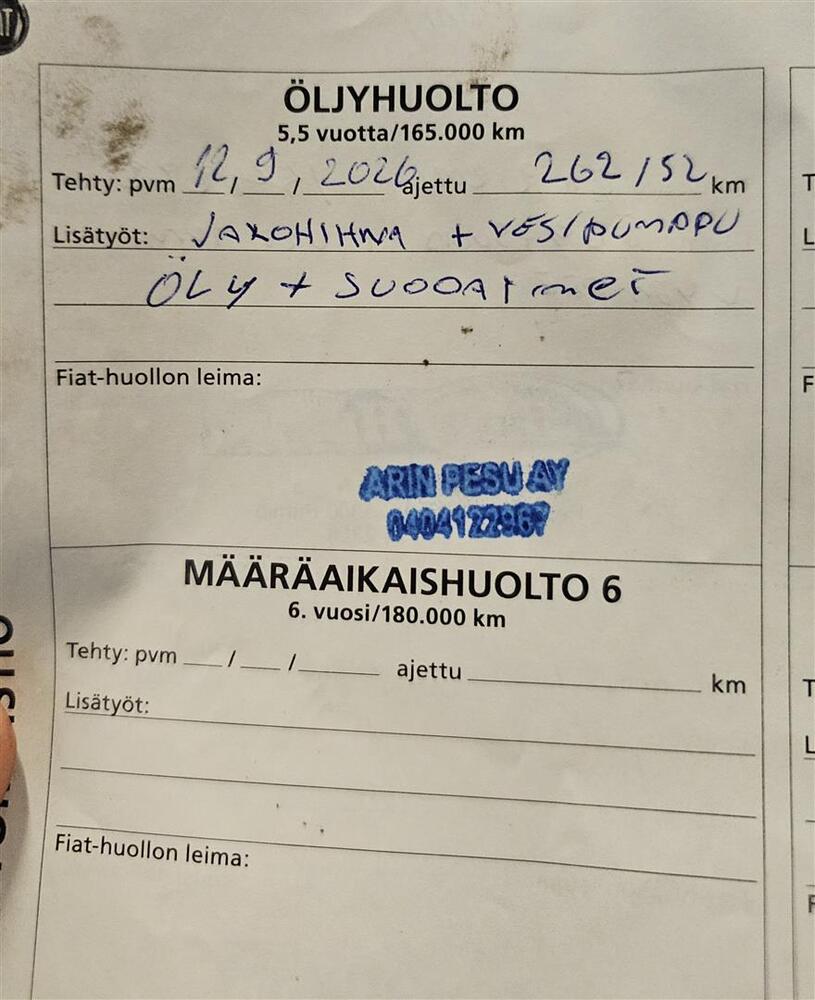 ÖLJYHUOLTO
5,5 vuotta/165.000 km
Tehty: pvm 12, 9, 2026 ajettu 262152 km
Lisätyöt: JAKOHIHNA + VESIPUMPPU
ÖLY + SUODATIMET
Fiat-huollon leima:
ARIN PESU AY
0404122967
MÄÄRÄAIKAISHUOLTO 6
6. vuosi/180.000 km
Tehty: pvm / / ajettu km
Lisätyöt:
Fiat-huollon leima: